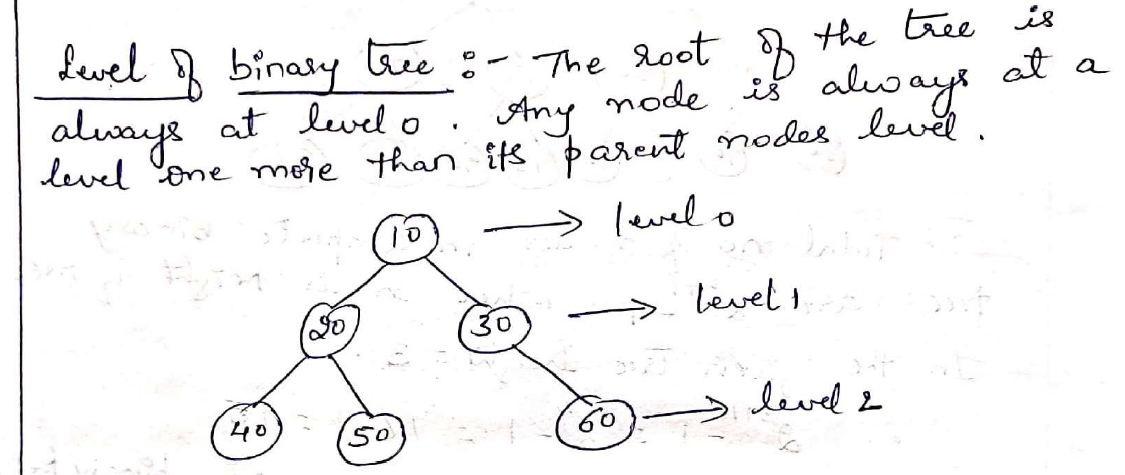 Level of binary tree :- The root of the tree is
always at level 0. Any node is always at a
level one more than its parent nodes level.
10 → level 0
20 30 → level 1
40 50 60 → level 2